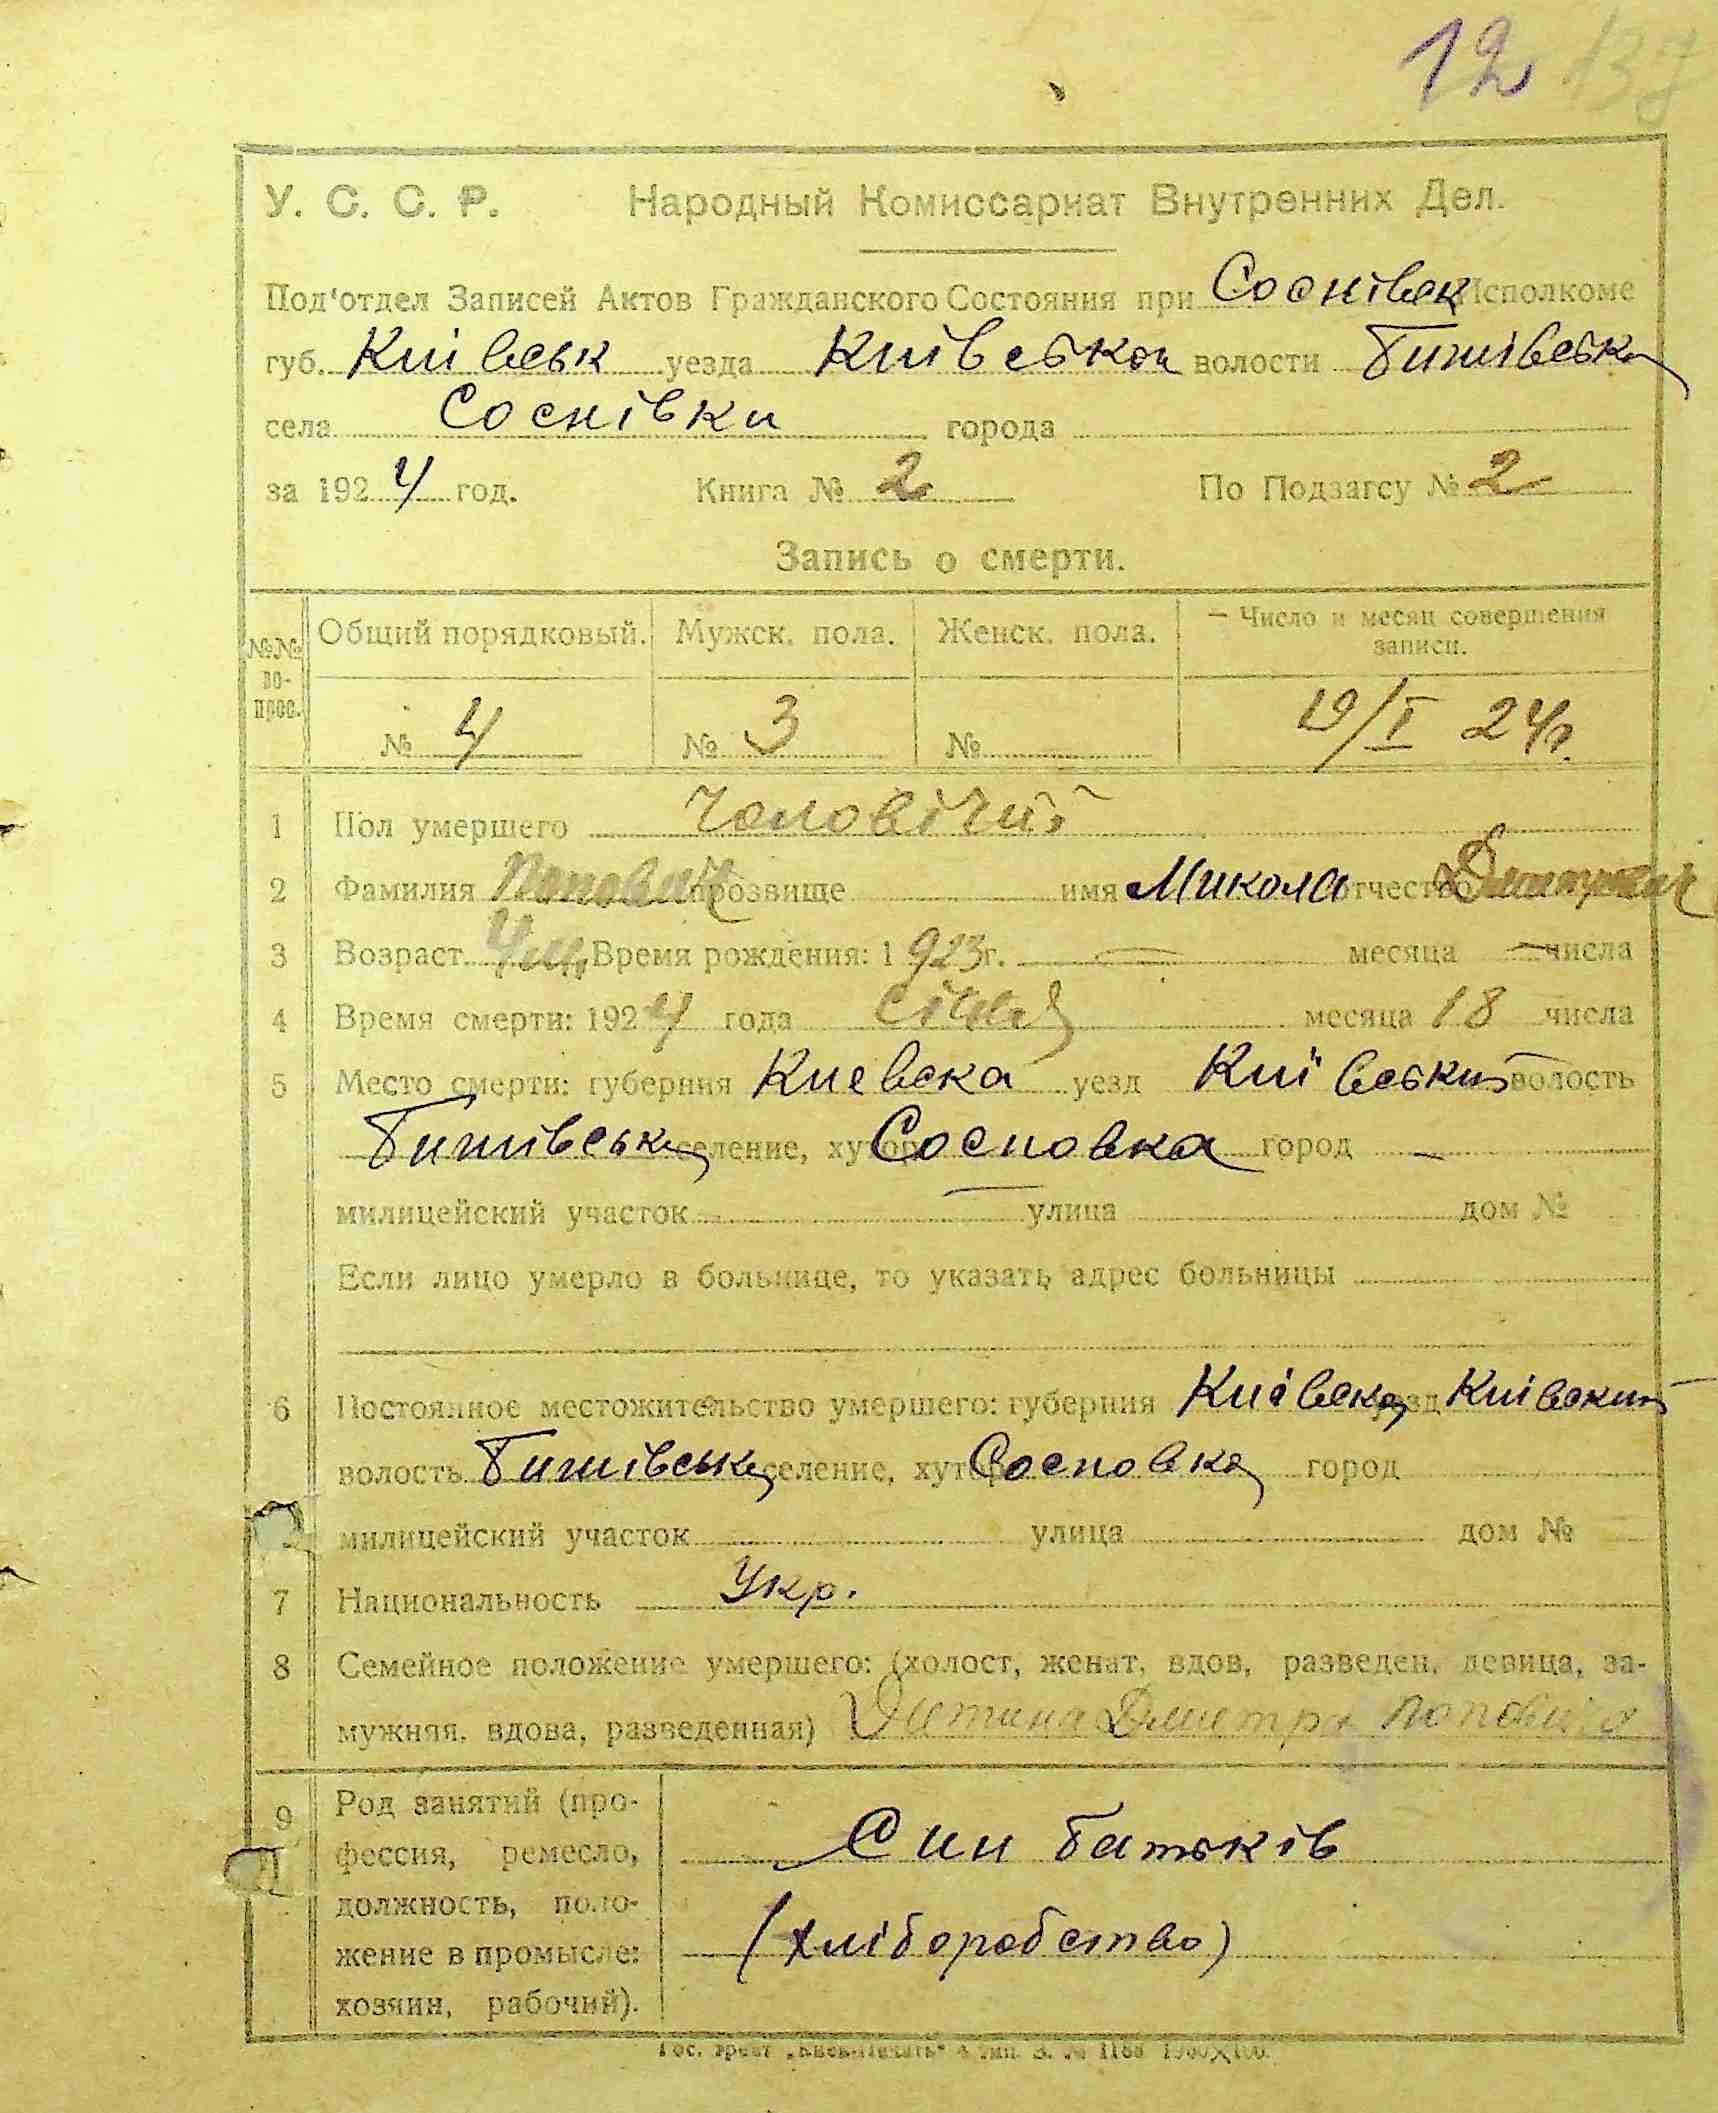 12 137
У. С. С. Р. Народный Комиссариат Внутренних Дел.
Под'отдел Записей Актов Гражданского Состояния при Соснівск Исполкоме
губ. Київськ уезда Київської волости Бишівської
села Соснівки города
за 1924 год. Книга № 2 По Подзагсу № 2
Запись о смерти.
№№ вопрос. Общий порядковый. Мужск. пола. Женск. пола. Число и месяц совершения записи.
№ 4 № 3 № 19/I 24г.
1 Пол умершего Чоловічий
2 Фамилия Попович прозвище имя Микола отчество Дмитрович
3 Возраст 4 м. Время рождения: 1923г. — месяца — числа
4 Время смерти: 1924 года січня месяца 18 числа
5 Место смерти: губерния Киевска уезд Київський волость
Бишівська селение, хутор Сосновка город —
милицейский участок — улица дом №
Если лицо умерло в больнице, то указать адрес больницы
6 Постоянное местожительство умершего: губерния Київска уезд Київский
волость Бишівська селение, хутор Сосновка город
милицейский участок улица дом №
7 Национальность Укр.
8 Семейное положение умершего: (холост, женат, вдов, разведен, девица, за-
мужняя, вдова, разведенная) Дитина Дмитра Поповича
9 Род занятий (про-
фессия, ремесло, Син батьків
должность, поло-
жение в промысле: (хліборобство)
хозяин, рабочий).
Гос. трест „Киев-Печать" 4 тип. З. № 1188